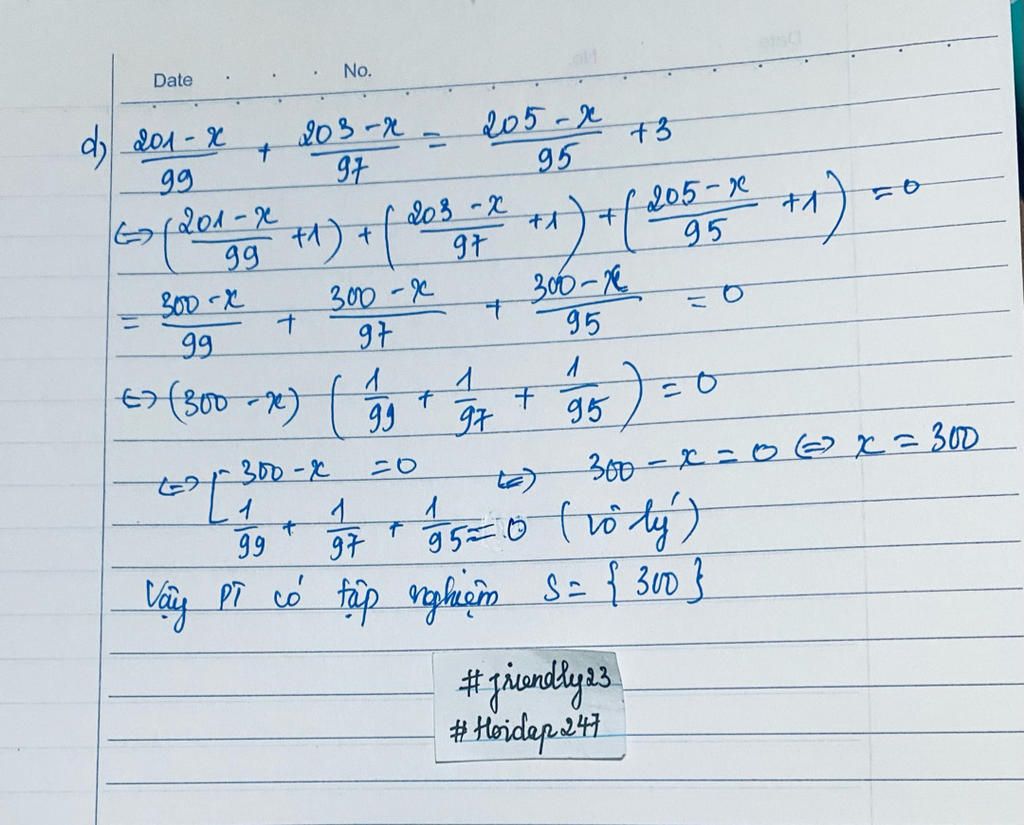 Date No.
d) (201 - x)/99 + (203 - x)/97 = (205 - x)/95 + 3
⇔ ((201 - x)/99 + 1) + ((203 - x)/97 + 1) + ((205 - x)/95 + 1) = 0
= (300 - x)/99 + (300 - x)/97 + (300 - x)/95 = 0
⇔ (300 - x) (1/99 + 1/97 + 1/95) = 0
⇔ [ 300 - x = 0 ⇔ 300 - x = 0 ⇔ x = 300
1/99 + 1/97 + 1/95 = 0 (vô lý)
Vậy PT có tập nghiệm S = { 300 }
#friendly23
#Hoidap247